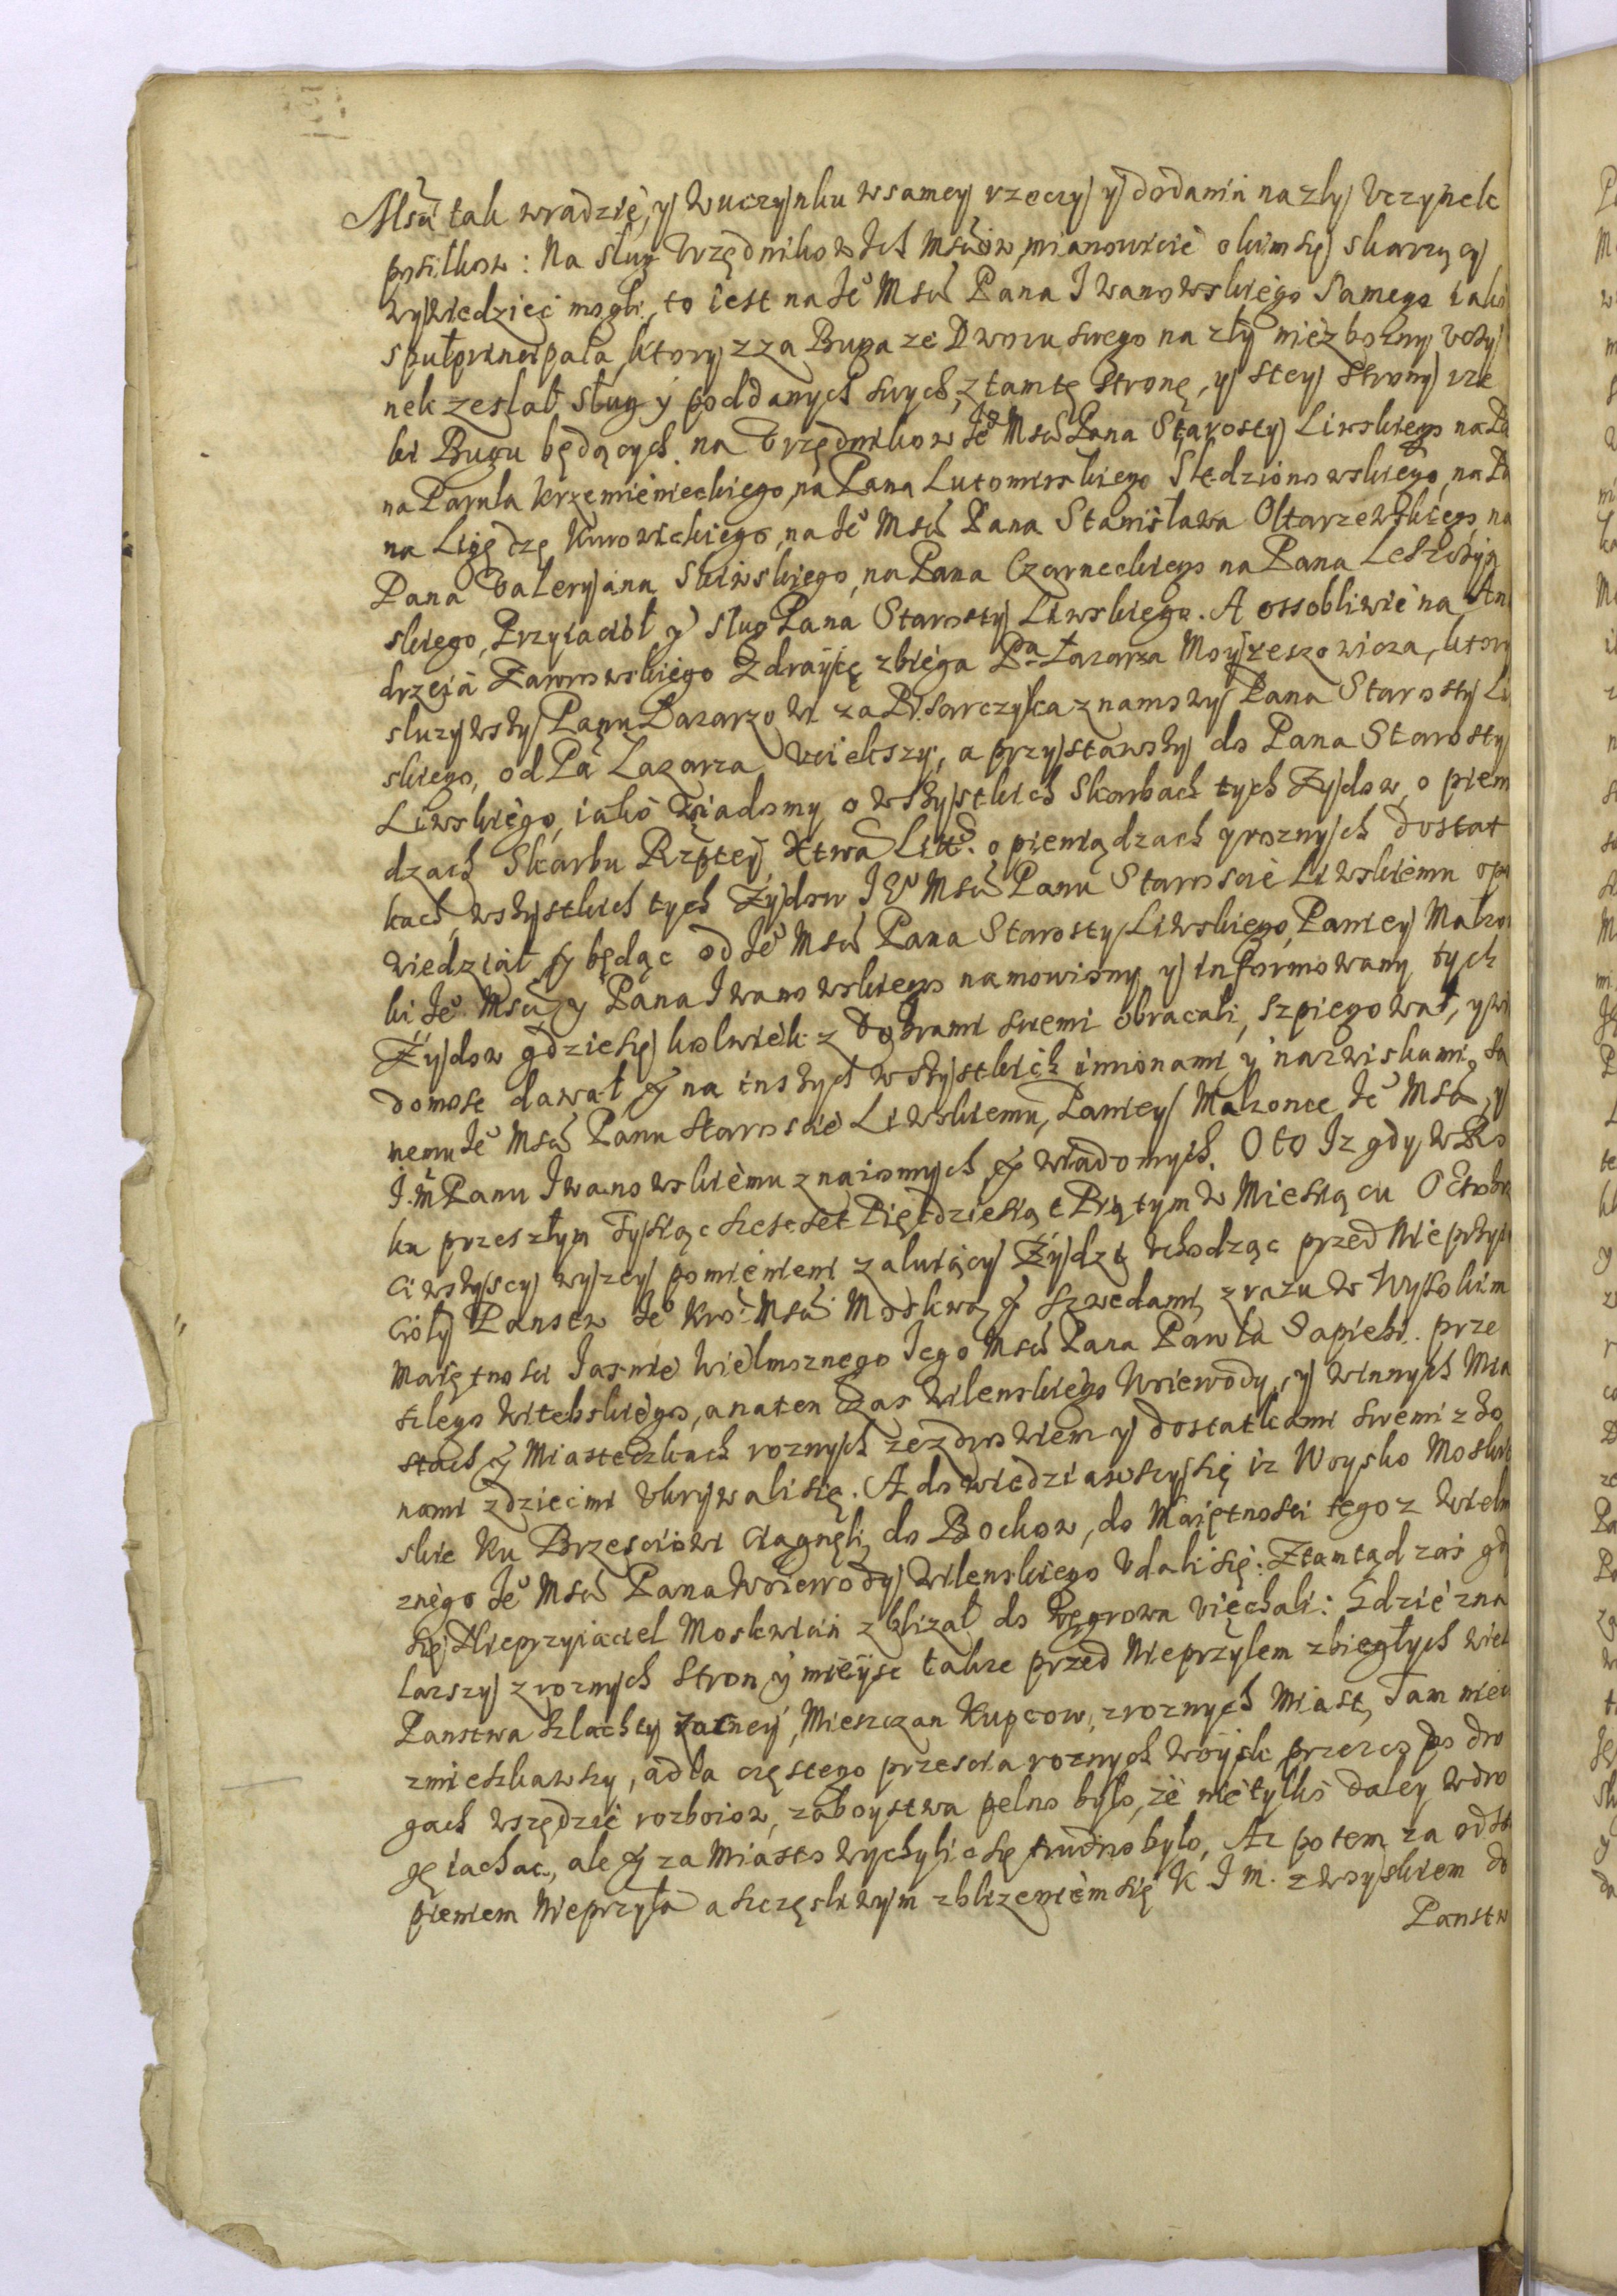 Msci tak wradzie, y wuczynku wsamey rzeczy y dodaniu nazły Vczynek
posiłkow: Na sług Vrzędnikow Ich Msciow, mianowicie okimsię skarzący
wywiedziec mogli, to iest na Ie° Msci Pana Iwanowskiego Samego iako
spułprincipała, ktory zza Buga ze Dworu swego na zły niezbozny Vczy
nek zesłał sług y poddanych swych, z tamtę stronę, y stey strony rze
ki Bugu będących, na Vrzędnikow Ie° Msci Pana Starosty Liwskiego na Pa
na Pawla Krzemienieckiego, na Pana Lutomirskiego Sledzionowskiego, na Pa
na Ligędzę Kurowickiego, na Ie° Msci Pana Stanisława Ołtarzewskiego, na
Pana Valeryana Skiwskiego, na Pana Czarneckiego na Pana Leszczyn
skiego, Przyiacioł y sług Pana Starosty Liwskiego. A ossobliwie na An
drzeia Zaworowskiego Zdraycę zbiega Pa Łazarza Moyzeszowicza, ktory
sluzywszy Panu Łazarzowi za Pisarczyka znamowy Pana Starosty Li
skiego, od Pa Łazarza Vciekszy, a przystawszy do Pana Starosty
Liwskiego, iako wiadomy o wszystkich Skarbach tych Zydow, o pienią
dzach Skarbu Rzptey Xtwa Litt°. o pieniądzach y roznych dostat
kach, wszystkich tych Zydow Ie° Msci Panu Staroscie Liwskiemu opo
wiedział y będąc od Ie° Msci Pana Starosty Liwskiego, Paniey Małzon
ki Ie° Msci y Pana Iwanowskiego namowiony y informowany tych
Zydow gdziesię kolwiek z Dobrami swemi obracali, szpiegował, y wia
domosc dawał y na inszych wszystkich imionami y nazwiskami, sa
nemu Ie° Msci Panu Staroscie Liwskiemu, Paniey Małzonce Ie° Msci, y
I. M Panu Iwanowskiemu znaiomych y wiadomych. O to Iz gdy w Ro
ku przeszłym Tysiąc szescset Pięcdziesiąt Piątym w Miesiącu Octobrze
ci wszyscy wyzey pomienieni zaluiący Zydzi Vchodząc przed Nieprzyia
cioły Panstw Ie° Kro: Msci Moskwą y szwedami, zrazu w Wysokim
Maiętnosci Iasnie Wielmoznego Iego Msci Pana Pawła Sapiehi prze
szlego Witebskiego, anaten Czas Wilenskiego Woiewody, y winnych Mia
stach y Miasteczkach roznych zezdrowiem y dostatkami swemi z zo
nami z dziecmi Vkrywali się. A dowiedziawszysię iz Woysko Moskie
skie ku Brzesciowi ciagnęło, do Bockow, do Maiętnosci tegoz Wielm
znego Ie° Msci Pana Woiewody Wilenskiego Vdalisię: Ztamtąd zas gd
się Nieprzyiaciel Moskwicin zblizał do Węgrowa Viechali: Gdzie zna
lazszy zroznych Stron y mieysc takze przed Nieprzylem zbiegłych wiel
Panstwa Szlachty zacney, Mieszczan Kupcow, zroznych Miast, Tam niec
zmieszkawszy, adla częstego przescia roznych woysk przezco po dro
gach wszędzie rozboiow, zaboystwa pelno było, ze nietylko daley wdro
gę iachac, ale y za Miasto wychylic się trudno było, Az potem za odstą
pieniem Nieprzyla a szczęsliwym zblizeniem się K I M. z woyskiem do
Panstw